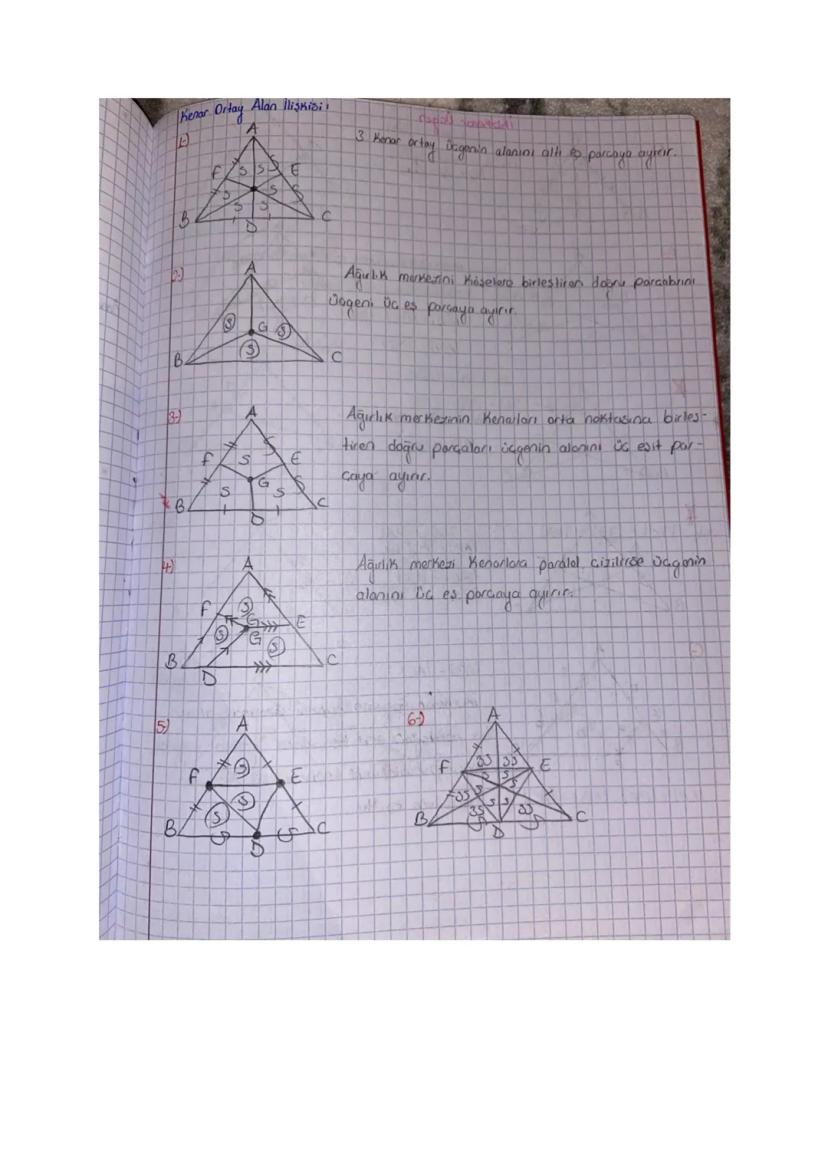 Kenar Ortay Alan İlişkisi:
1-)
A
3 Kenar ortay üçgenin alanını altı eş parçaya ayırır.
F S S E
S S
S S
B D C
2-)
A
Ağırlık merkezini köşelere birleştiren doğru parçalarını
üçgeni üç eş parçaya ayırır.
S G S
S
B C
3-)
A
Ağırlık merkezinin kenarları orta noktasına birleş-
tiren doğru parçaları üçgenin alanını üç eşit par-
çaya ayırır.
F S E
G
S S
B D C
4-)
A
Ağırlık merkezi kenarlara paralel çizilirse üçgenin
alanını üç eş parçaya ayırır.
F S G E
S G S
B D C
5-)
A
F S E
S S
B D C
6-)
A
F 3S 3S E
S S
3S S S
3S S S 3S
B D C